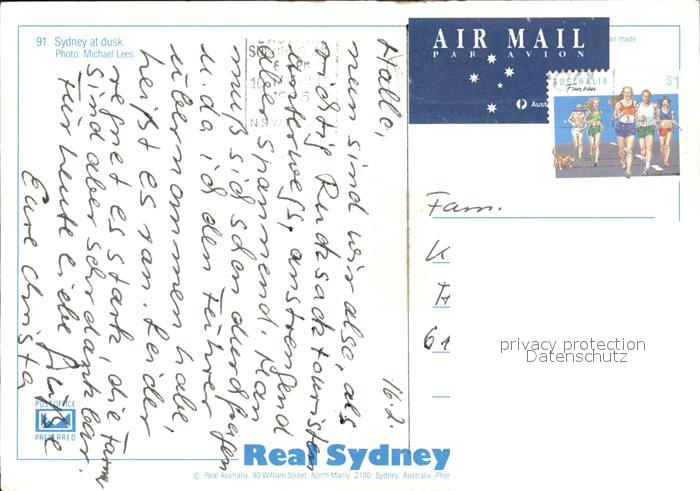 91. Sydney at dusk.
Photo: Michael Lees
AIR MAIL
PAR AVION
AUSTRALIA
$1
Fun run
Hallo,
16.2.
nun sind wir also, als
richtige Rucksacktouristen
unterwegs, anstrengend
aber spannend. Man
muß sich schon durchfragen
u. da ich den Führer
übernommen habe,
heißt es ran. Leider
regnet es stark, die Farmer
sind aber sehr dankbar.
Für heute liebe Grüße
Eure Christa
Fam.
K
61
privacy protection
Datenschutz
POST OFFICE
PREFERRED
Real Sydney
© Real Australia, 90 William Street, North Manly, 2100, Sydney, Australia